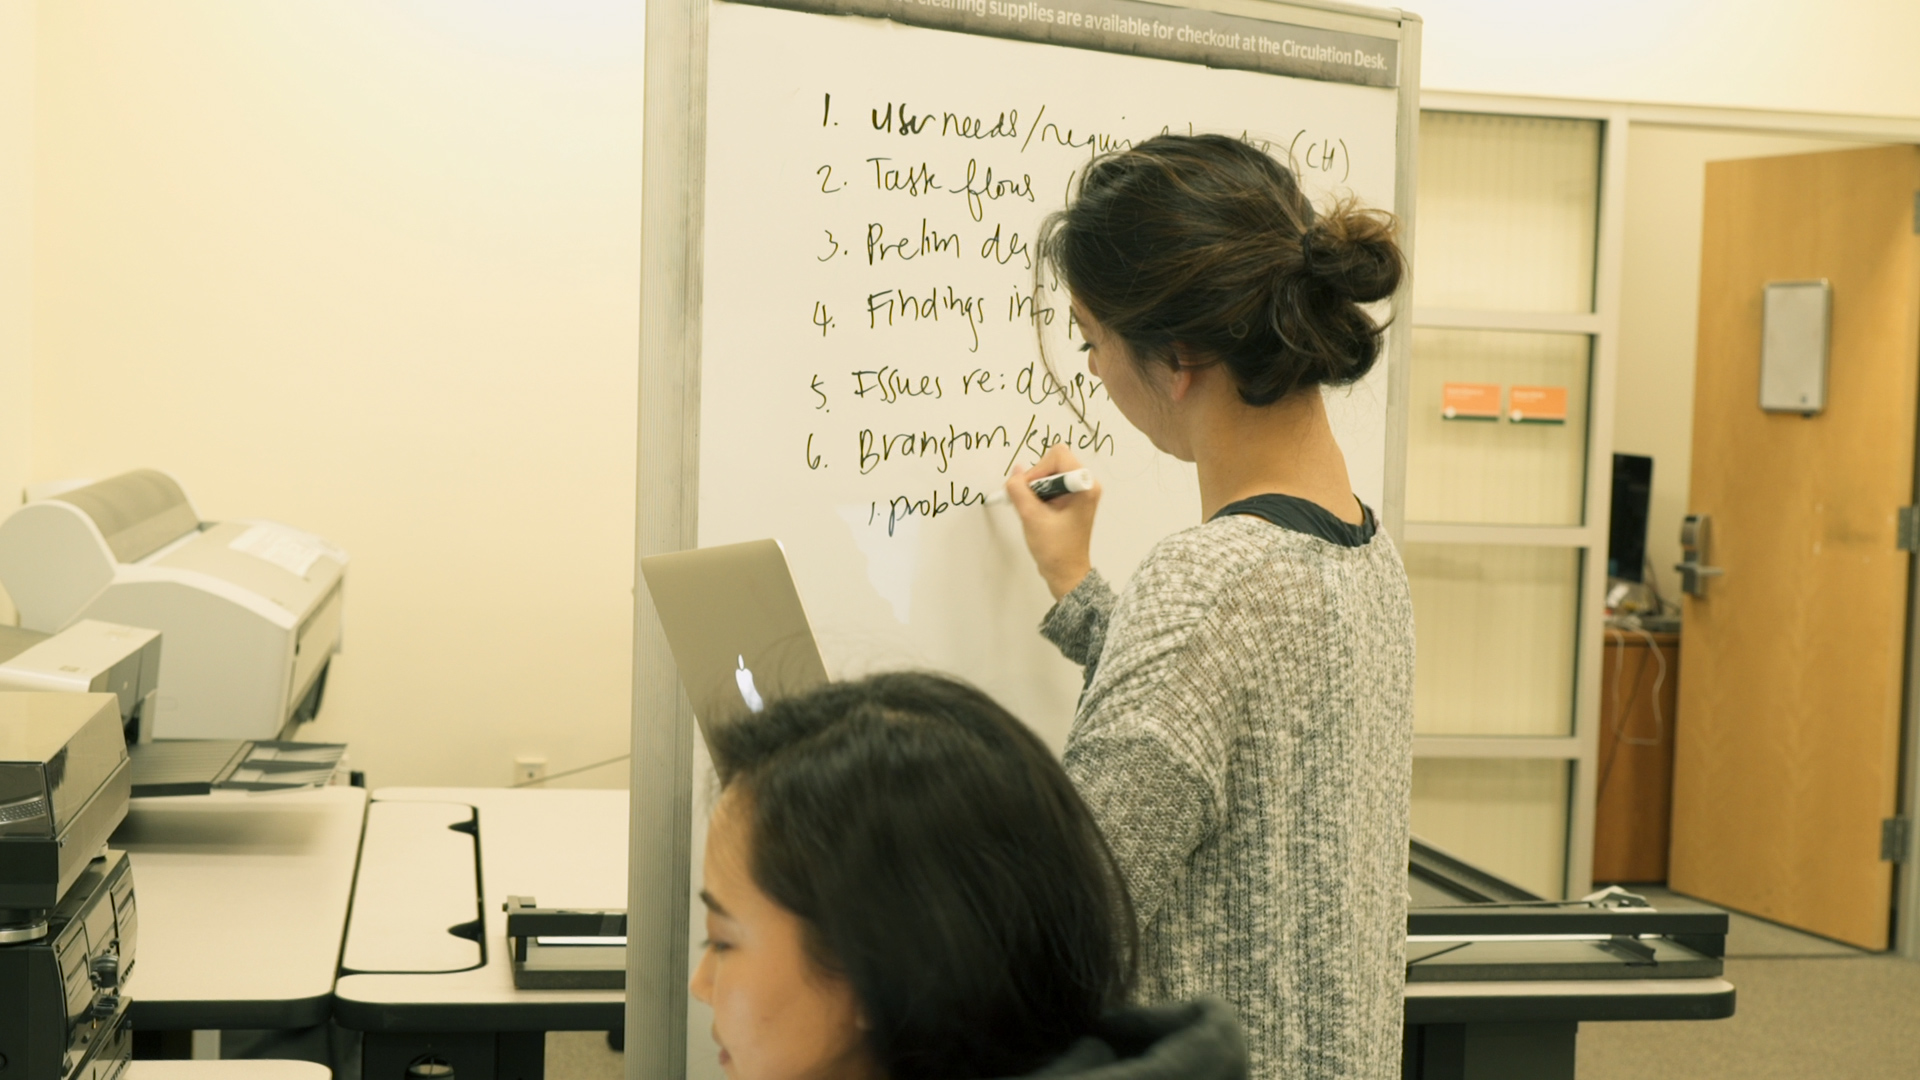 cleaning supplies are available for checkout at the Circulation Desk.
1. User needs/requir (CH)
2. Task flows (
3. Prelim des
4. Findings info
5. Issues re: design
6. Branstorm/sketch
1. problem